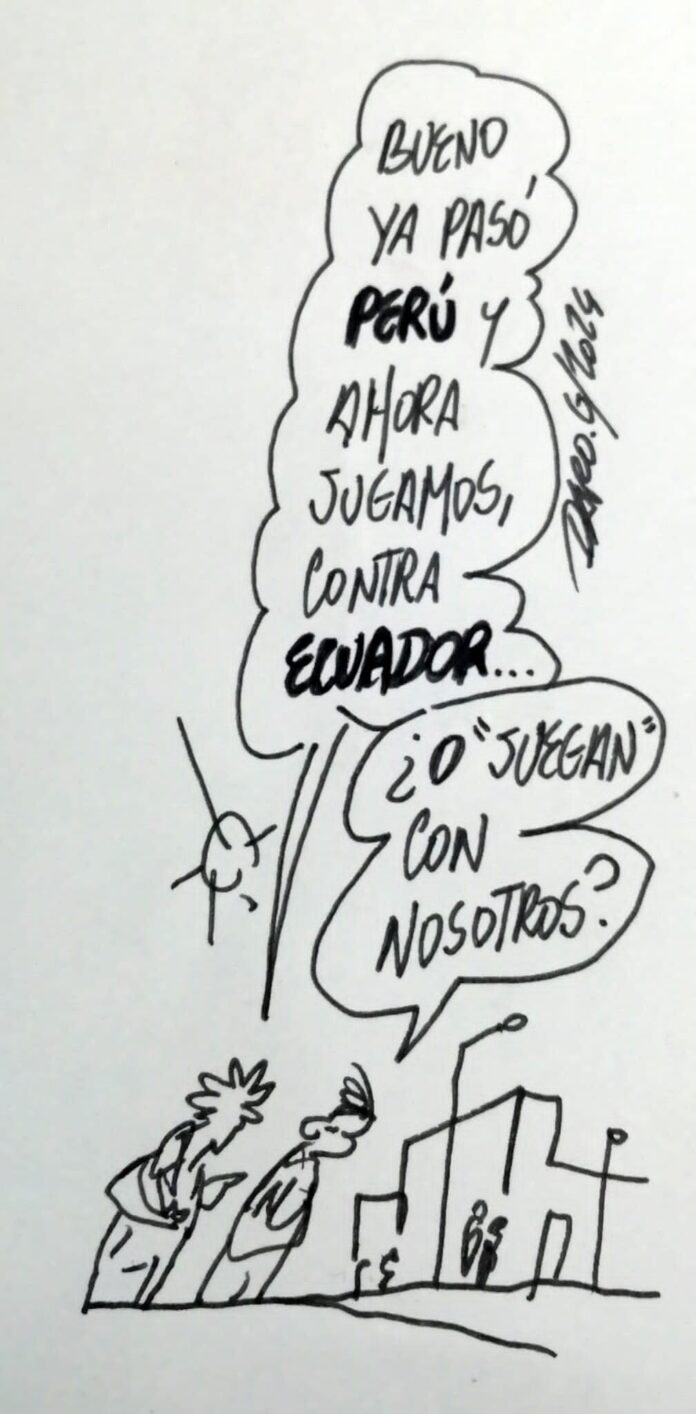 BUENO
YA PASÓ
PERÚ Y
AHORA
JUGAMOS,
CONTRA
ECUADOR...
¿O "JUEGAN"
CON
NOSOTROS?